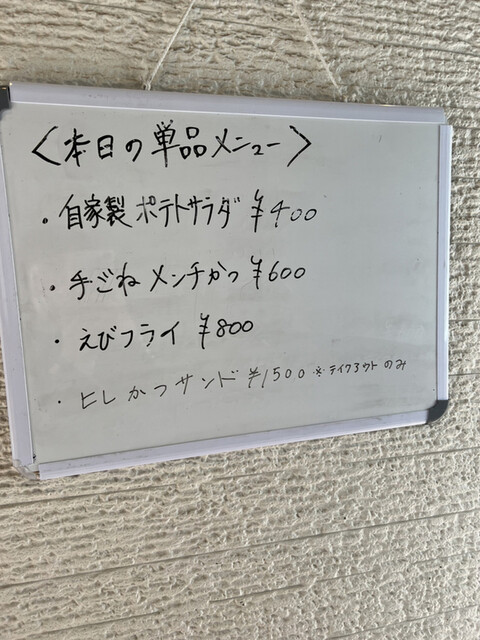 〈本日の単品メニュー〉
・自家製ポテトサラダ ¥400
・手ごねメンチかつ ¥600
・えびフライ ¥800
・ヒレかつサンド ¥1500 ※テイクアウトのみ